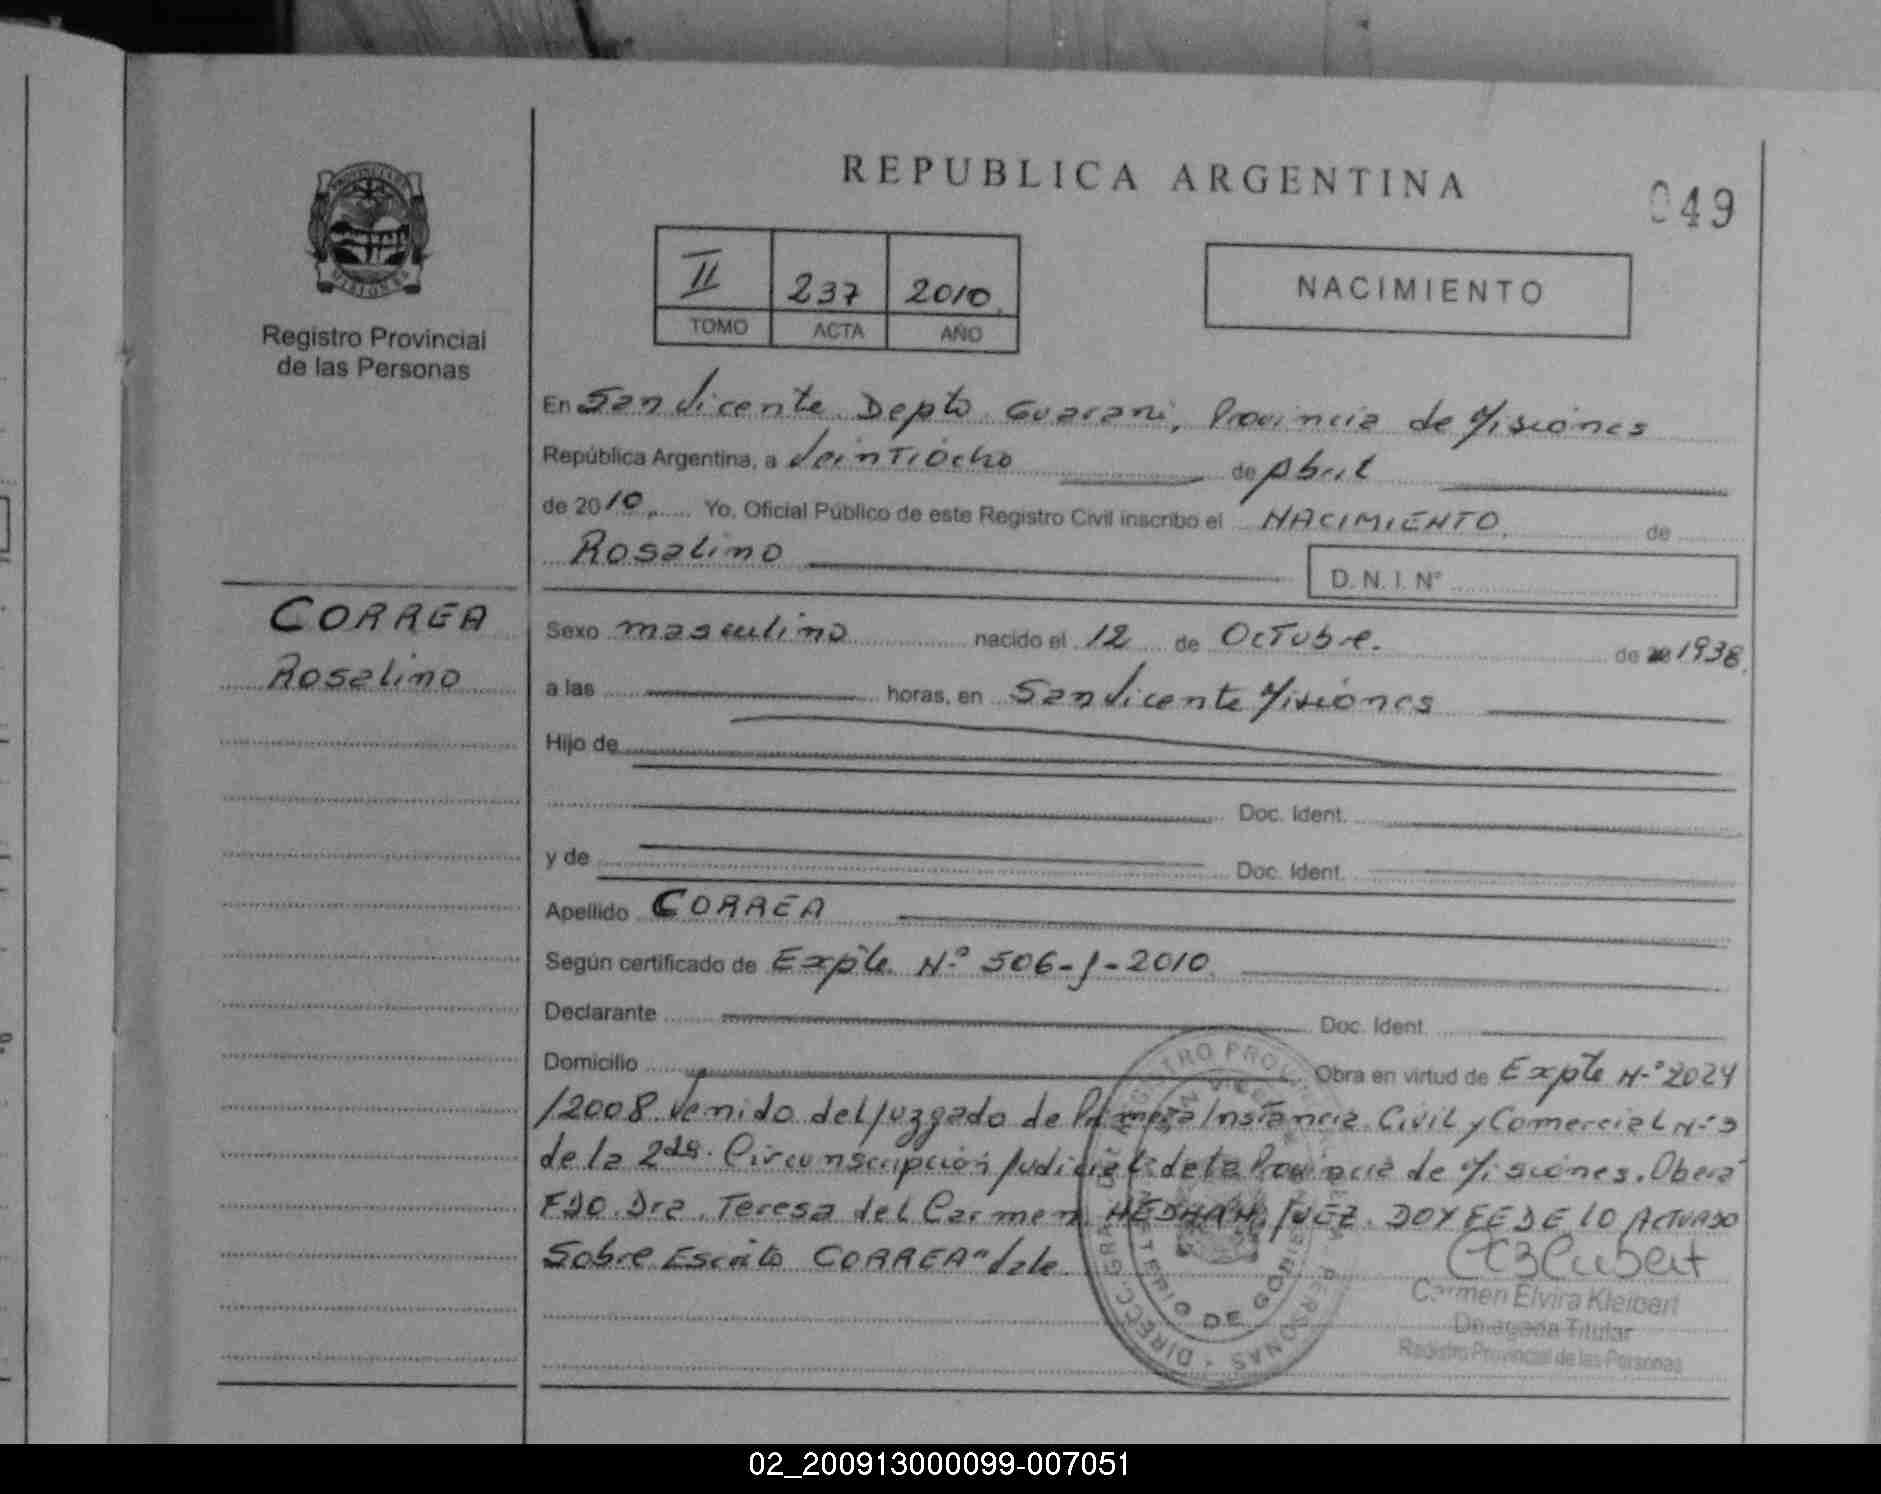 REPUBLICA ARGENTINA
049
Registro Provincial
de las Personas
II 237 2010
TOMO ACTA AÑO
NACIMIENTO
En San Vicente Depto Guarani, Provincia de Misiones
República Argentina, a Veintiocho de Abril
de 2010 Yo, Oficial Público de este Registro Civil inscribo el NACIMIENTO de
Rosalino D. N. I. Nº
CORREA
Rosalino
Sexo masculino nacido el 12 de Octubre. de 1938.
a las horas, en San Vicente Misiones
Hijo de
Doc. Ident.
y de Doc. Ident.
Apellido CORREA
Según certificado de Expte. Nº 506-J-2010
Declarante Doc. Ident.
Domicilio Obra en virtud de Expte Nº 2024
/2008 Venido del Juzgado de Primera Instancia Civil y Comercial Nº
de la 2da. Circunscripción Judicial de la Provincia de Misiones. Oberá
FDO. Dra. Teresa del Carmen HEDMAN JUEZ. DOY FE DE LO ACTUADO
Sobre Escrito CORREA" Vale
Carmen Elvira Kleibert
Delegada Titular
Registro Provincial de las Personas
02_200913000099-007051